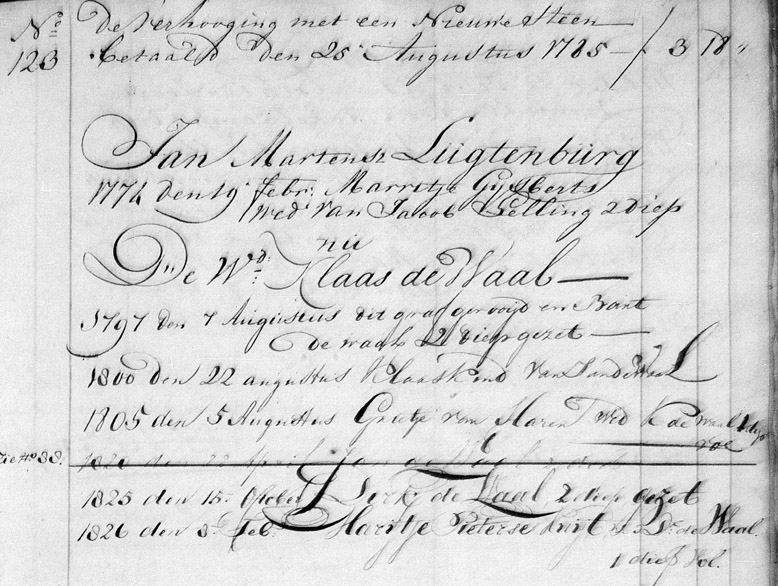 No
123
De Verhooging met een Nieuwe Steen
betaald den 25 Augustus 1785 - / 3 18 "
Jan Martensz Lugtenburg
1774 den 19 febr: Marritje Gysberts
Wed van Jacob Gelling 2 diep
nu
De Wd: Klaas de Waal
1797 den 7 Augustus dit graf gerooyd en
de waal 2 diep gezet
1800 den 22 augustus Klaas Kind Van
1805 den 5 Augustus Grietje van Haren wed K de Waal 1 diep
vol
Zie No 88.
1820 den 22 April Jan de Waal
1825 den 15 October Dirk de Waal 2 diep gezet
1826 den 8 Feb. Marytje Pieterse de Waal.
1 diep Vol.